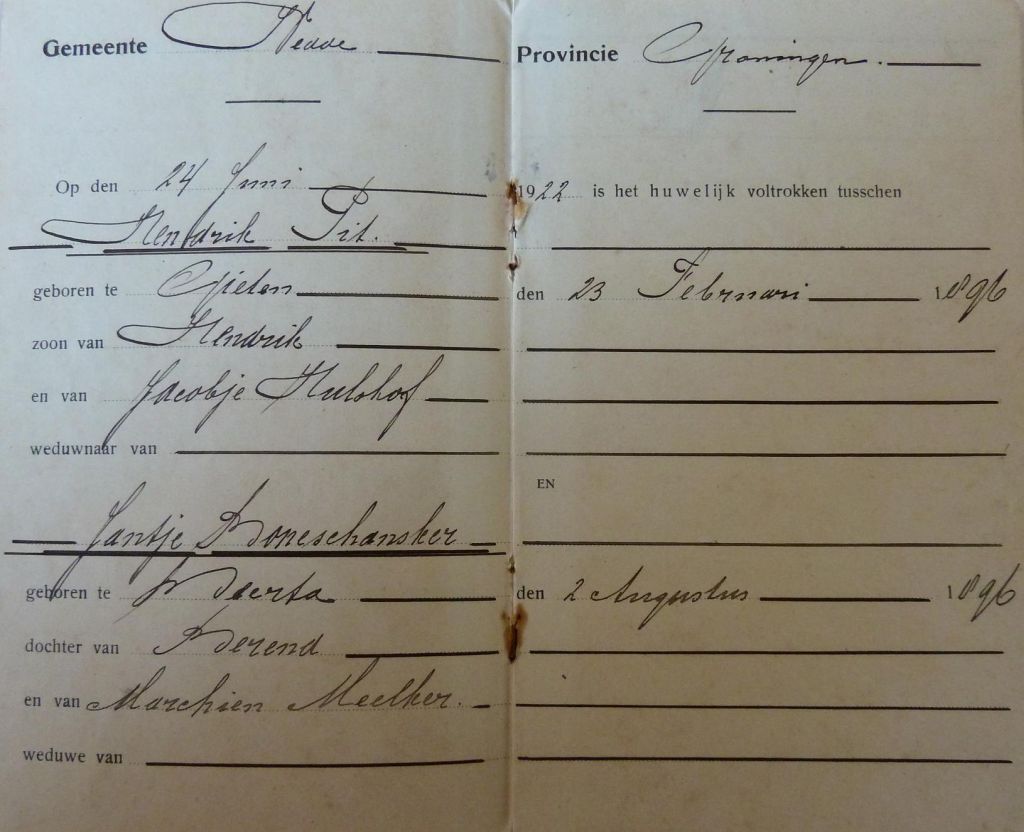 Gemeente Wedde Provincie Groningen.
Op den 24 Juni 1922 is het huwelijk voltrokken tusschen
Hendrik Pit.
geboren te Gieten den 23 Februari 1896
zoon van Hendrik
en van Jacobje Hulshof
weduwnaar van
EN
Jantje Boneschansker
geboren te Beerta den 2 Augustus 1896
dochter van Berend
en van Marchien Meelker.
weduwe van